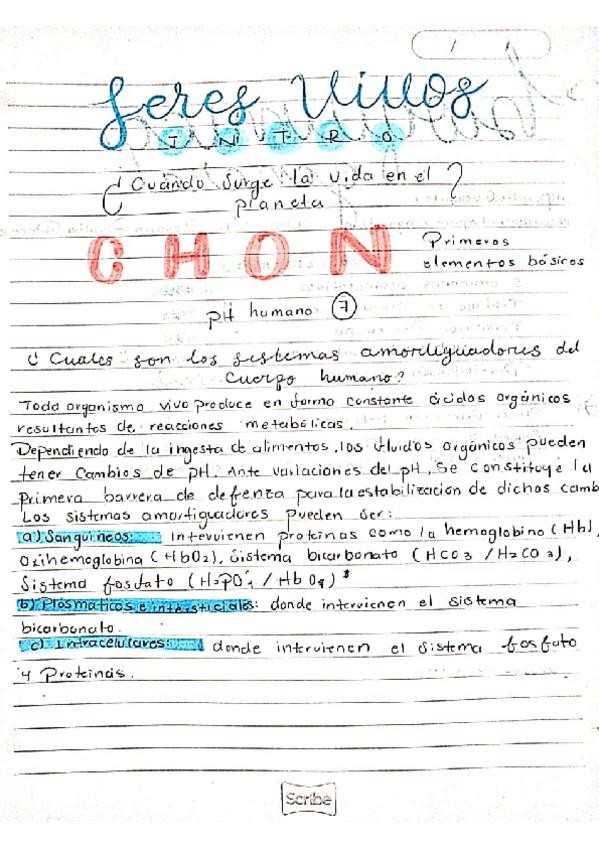 Seres Vivos
INTRO
¿Cuándo surge la vida en el
planeta?
CHON
Primeros
elementos básicos
pH humano 7
¿Cuales son los sistemas amortiguadores del
cuerpo humano?
Todo organismo vivo produce en forma constante ácidos orgánicos
resultantes de reacciones metabólicas.
Dependiendo de la ingesta de alimentos, los fluidos orgánicos pueden
tener cambios de pH. Ante variaciones del pH, se constituye la
primera barrera de defenza para la estabilización de dichos camb
Los sistemas amortiguadores pueden ser:
a) Sanguineos: Intervienen proteinas como la hemoglobina (Hb),
Oxihemoglobina (HbO2), Sistema bicarbonato (HCO3 / H2CO3),
Sistema fosfato
b) Plasmaticos e intersticiales: donde intervienen el sistema
bicarbonato.
c) Intracelulares: donde intervienen el sistema fosfato
y Proteinas.
Scribe